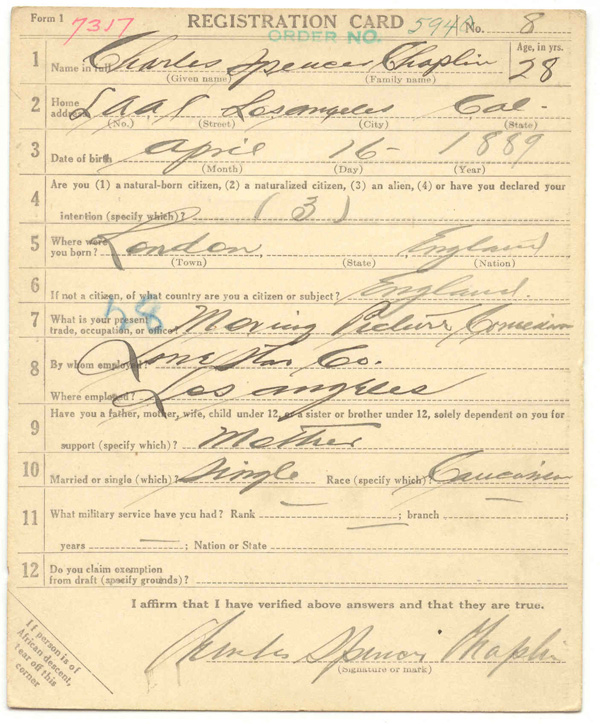 Form 1 7317 REGISTRATION CARD 594 No. 8
ORDER NO.
1 Name in full Charles Spencer Chaplin Age, in yrs. 28
(Given name) (Family name)
2 Home address L A A C Los angeles Cal-
(No.) (Street) (City) (State)
3 Date of birth April 16- 1889
(Month) (Day) (Year)
4 Are you (1) a natural-born citizen, (2) a naturalized citizen, (3) an alien, (4) or have you declared your
intention (specify which)? (3)
5 Where were you born? London, England
(Town) (State) (Nation)
6 If not a citizen, of what country are you a citizen or subject? England.
7 What is your present trade, occupation, or office? Moving Picture Comedian
8 By whom employed? Lone Star Co.
Where employed? Los angeles
9 Have you a father, mother, wife, child under 12, or a sister or brother under 12, solely dependent on you for
support (specify which)? Mother
10 Married or single (which)? Single Race (specify which)? Caucasian
11 What military service have you had? Rank — ; branch — ;
years — ; Nation or State
12 Do you claim exemption
from draft (specify grounds)?
I affirm that I have verified above answers and that they are true.
Charles Spencer Chaplin
(Signature or mark)
If person is of
African descent,
tear off this
corner